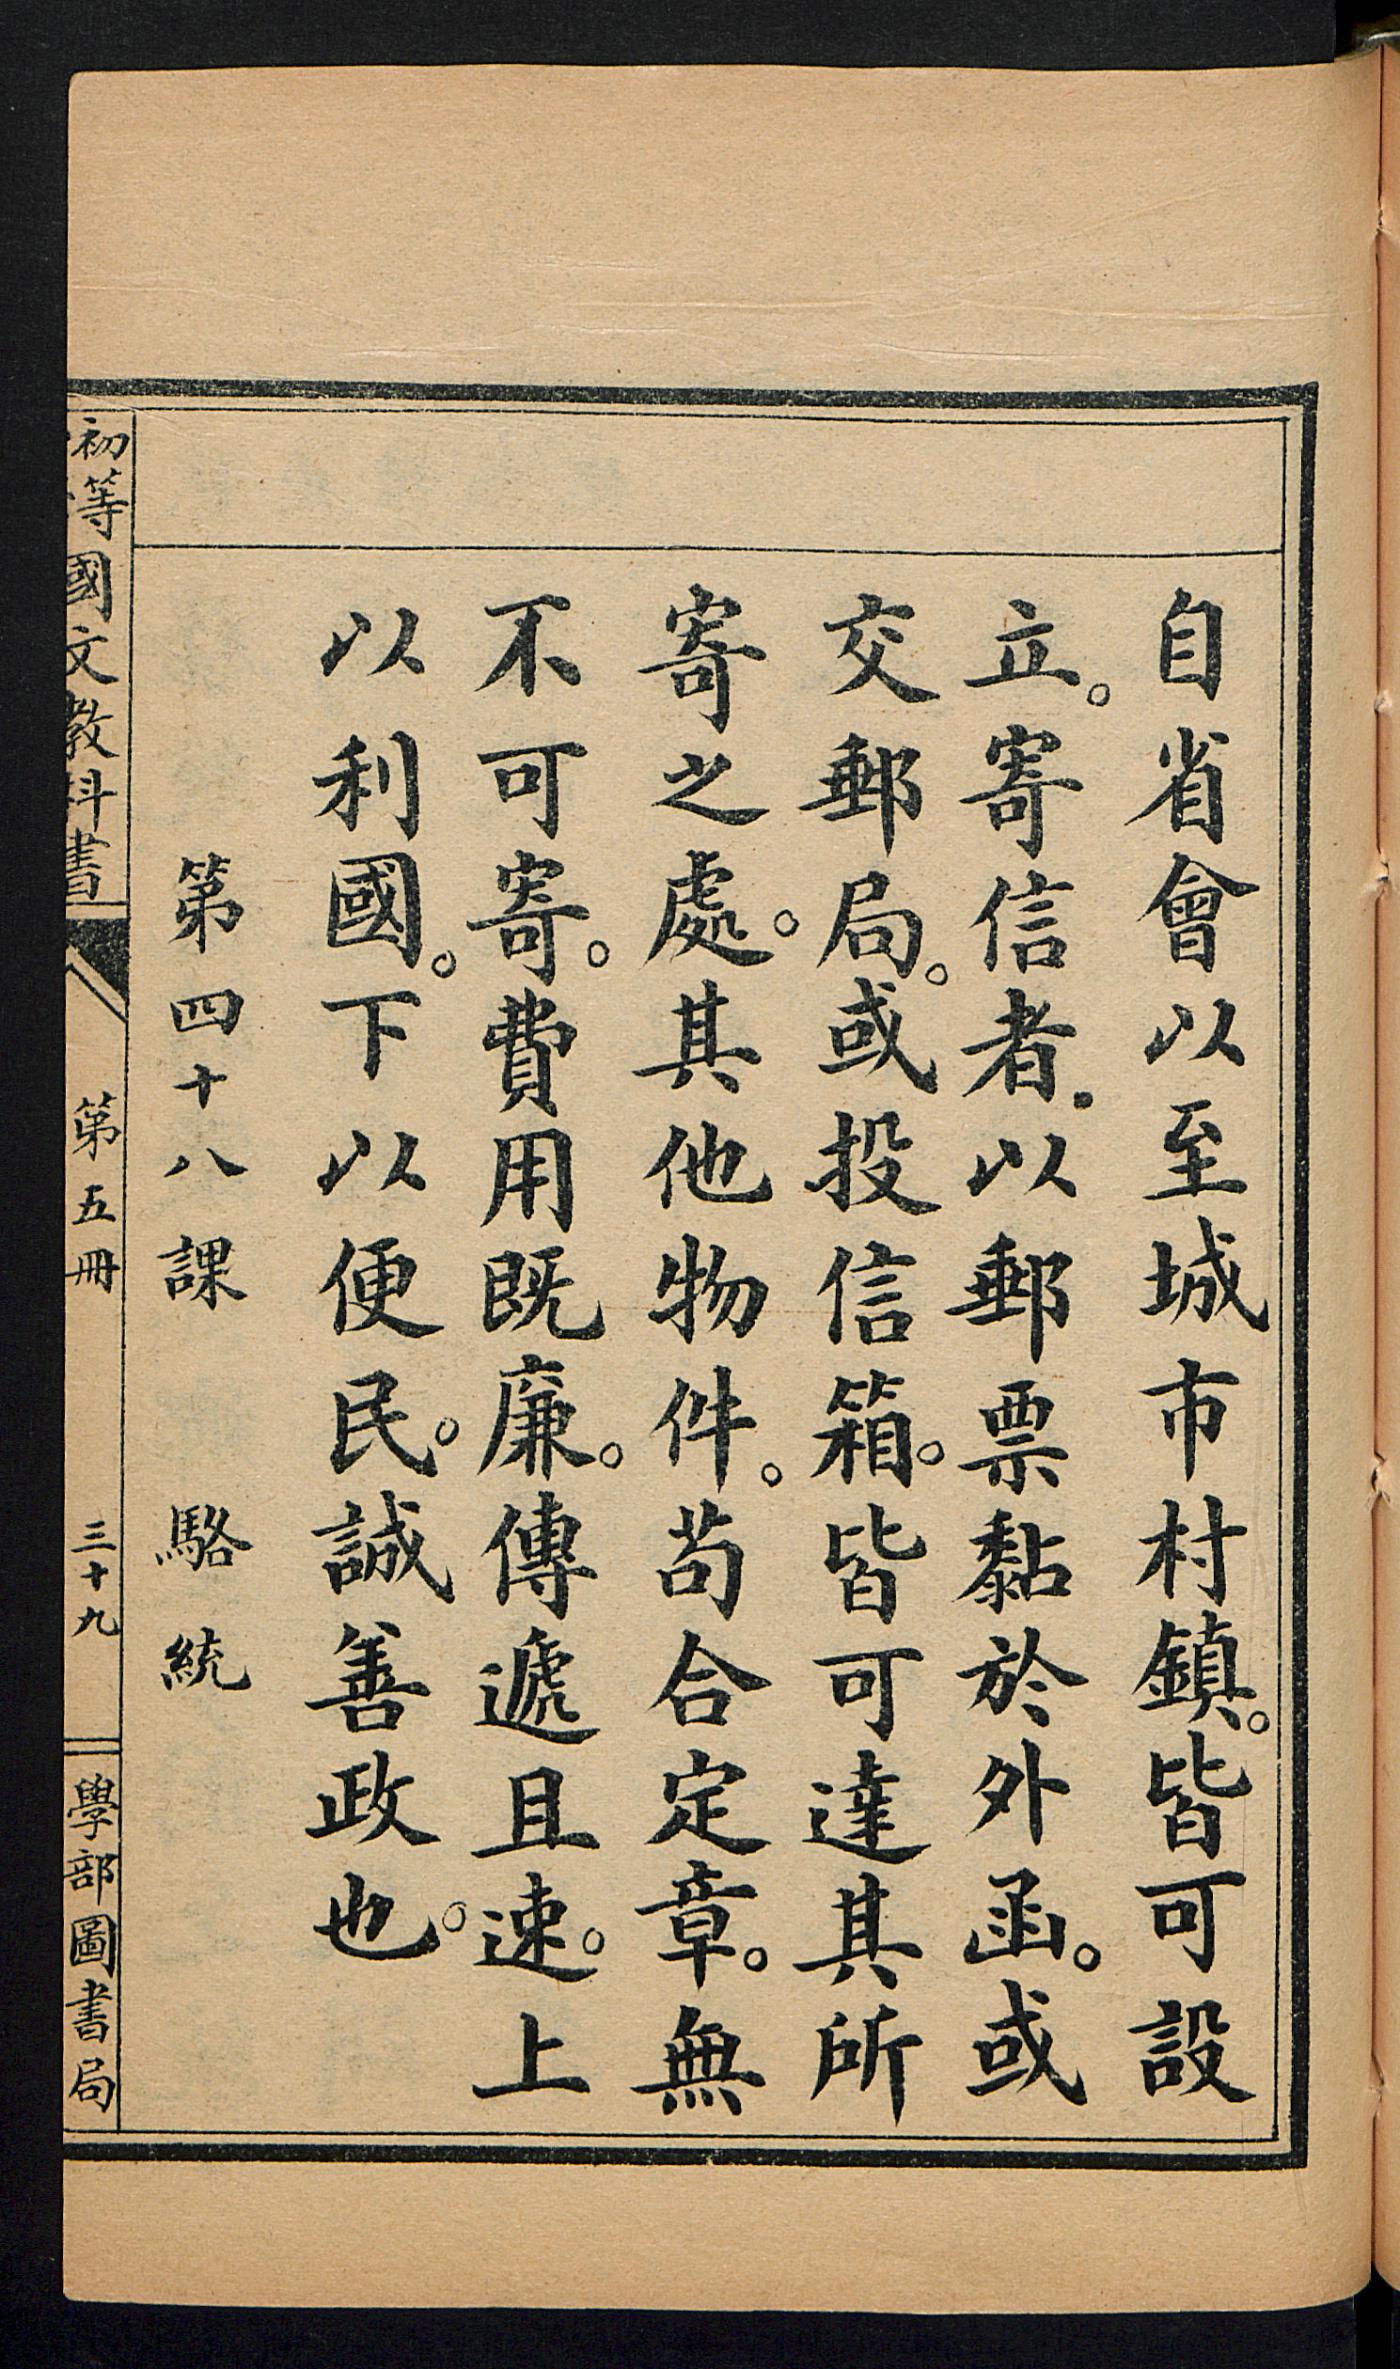 自省會以至城市村鎮。皆可設
立。寄信者.以郵票黏於外函。或
交郵局。或投信箱。皆可達其所
寄之處。其他物件。苟合定章。無
不可寄。費用既廉。傳遞且速。上
以利國。下以便民。誠善政也。
第四十八課 駱統
初等國文教科書 第五冊 三十九 學部圖書局